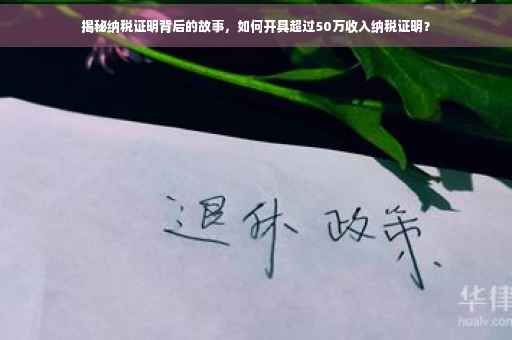 揭秘纳税证明背后的故事，如何开具超过50万收入纳税证明？
退休 政策
华律
hualv.com